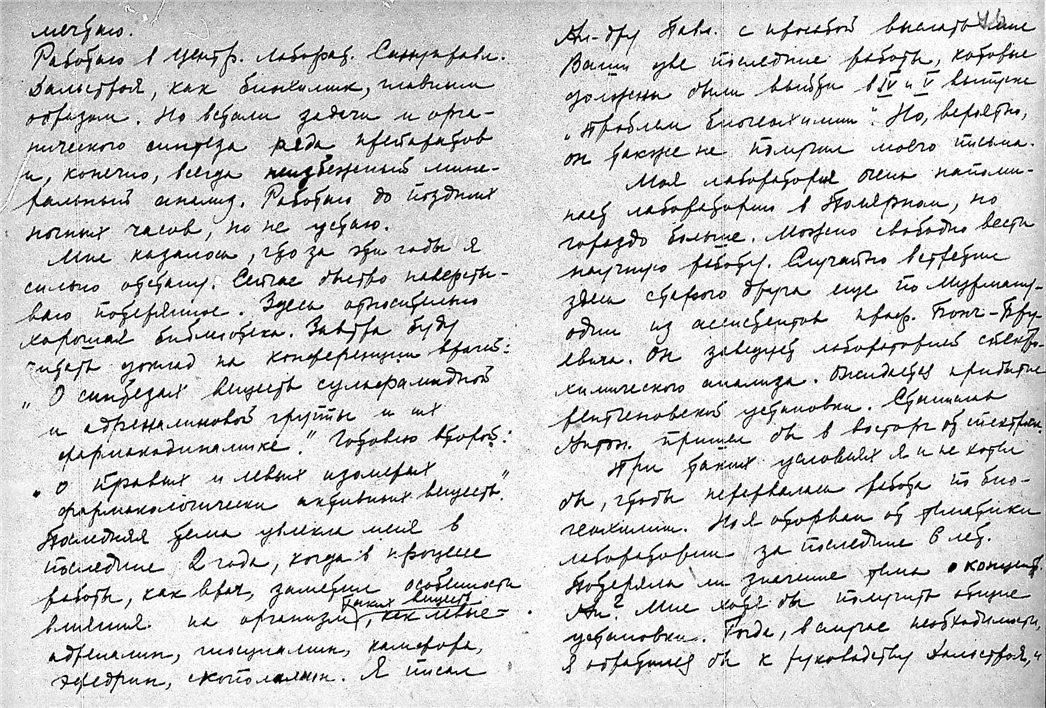 мечтаю.
Работаю в Центр. лаборат. Сануправл.
Дальстроя, как биохимик, главным
образом. Но встали задачи и орга-
нического синтеза ряда препаратов
и, конечно, всегда неизбежный мине-
ральный анализ. Работаю до поздних
ночных часов, но не устаю.
Мне казалось, что за эти годы я
сильно отстану. Сейчас быстро наверсты-
ваю потерянное. Здесь относительно
хорошая библиотека. Завтра буду
читать доклад на конференции врачей:
„О синтезах веществ сульфамидной
и адреналиновой группы и их
фармакодинамике". Готовлю второй:
„О правых и левых изомерах
фармакологически активных веществ".
Последняя тема увлекла меня в
последние 2 года, когда в процессе
работы, как врач, заметил особенности
влияния на организм таких веществ, как левые –
адреналин, гиосциамин, камфора,
эфедрин, скополамин. Я писал
Ал-дру Павл. с просьбой выслать мне
Ваши две последние работы, которые
должны были выйти в IV и V выпуске
„Проблем биогеохимии". Но, вероятно,
он также не получил моего письма.
Моя лаборатория очень напоми-
нает лабораторию в Полярном, но
гораздо больше. Можно свободно вести
научную работу. Случайно встретил
здесь старого друга еще по Мурману –
один из ассистентов проф. Бонч-Бру-
евича. Он заведует лабораторией спектро-
химического анализа. Ожидается прибытие
рентгеновской установки.
Антон. пришел бы в восторг от спектрогр.
При таких условиях я и не хотел
бы, чтобы прервалась работа по био-
геохимии. Но я оторван от тематики
лаборатории за последние 6 лет.
Потеряла ли значение тема о концентр.
Al? Мне хотя бы получить общие
установки. Тогда, в случае необходимости,
я обратился бы к руководству Дальстроя, и